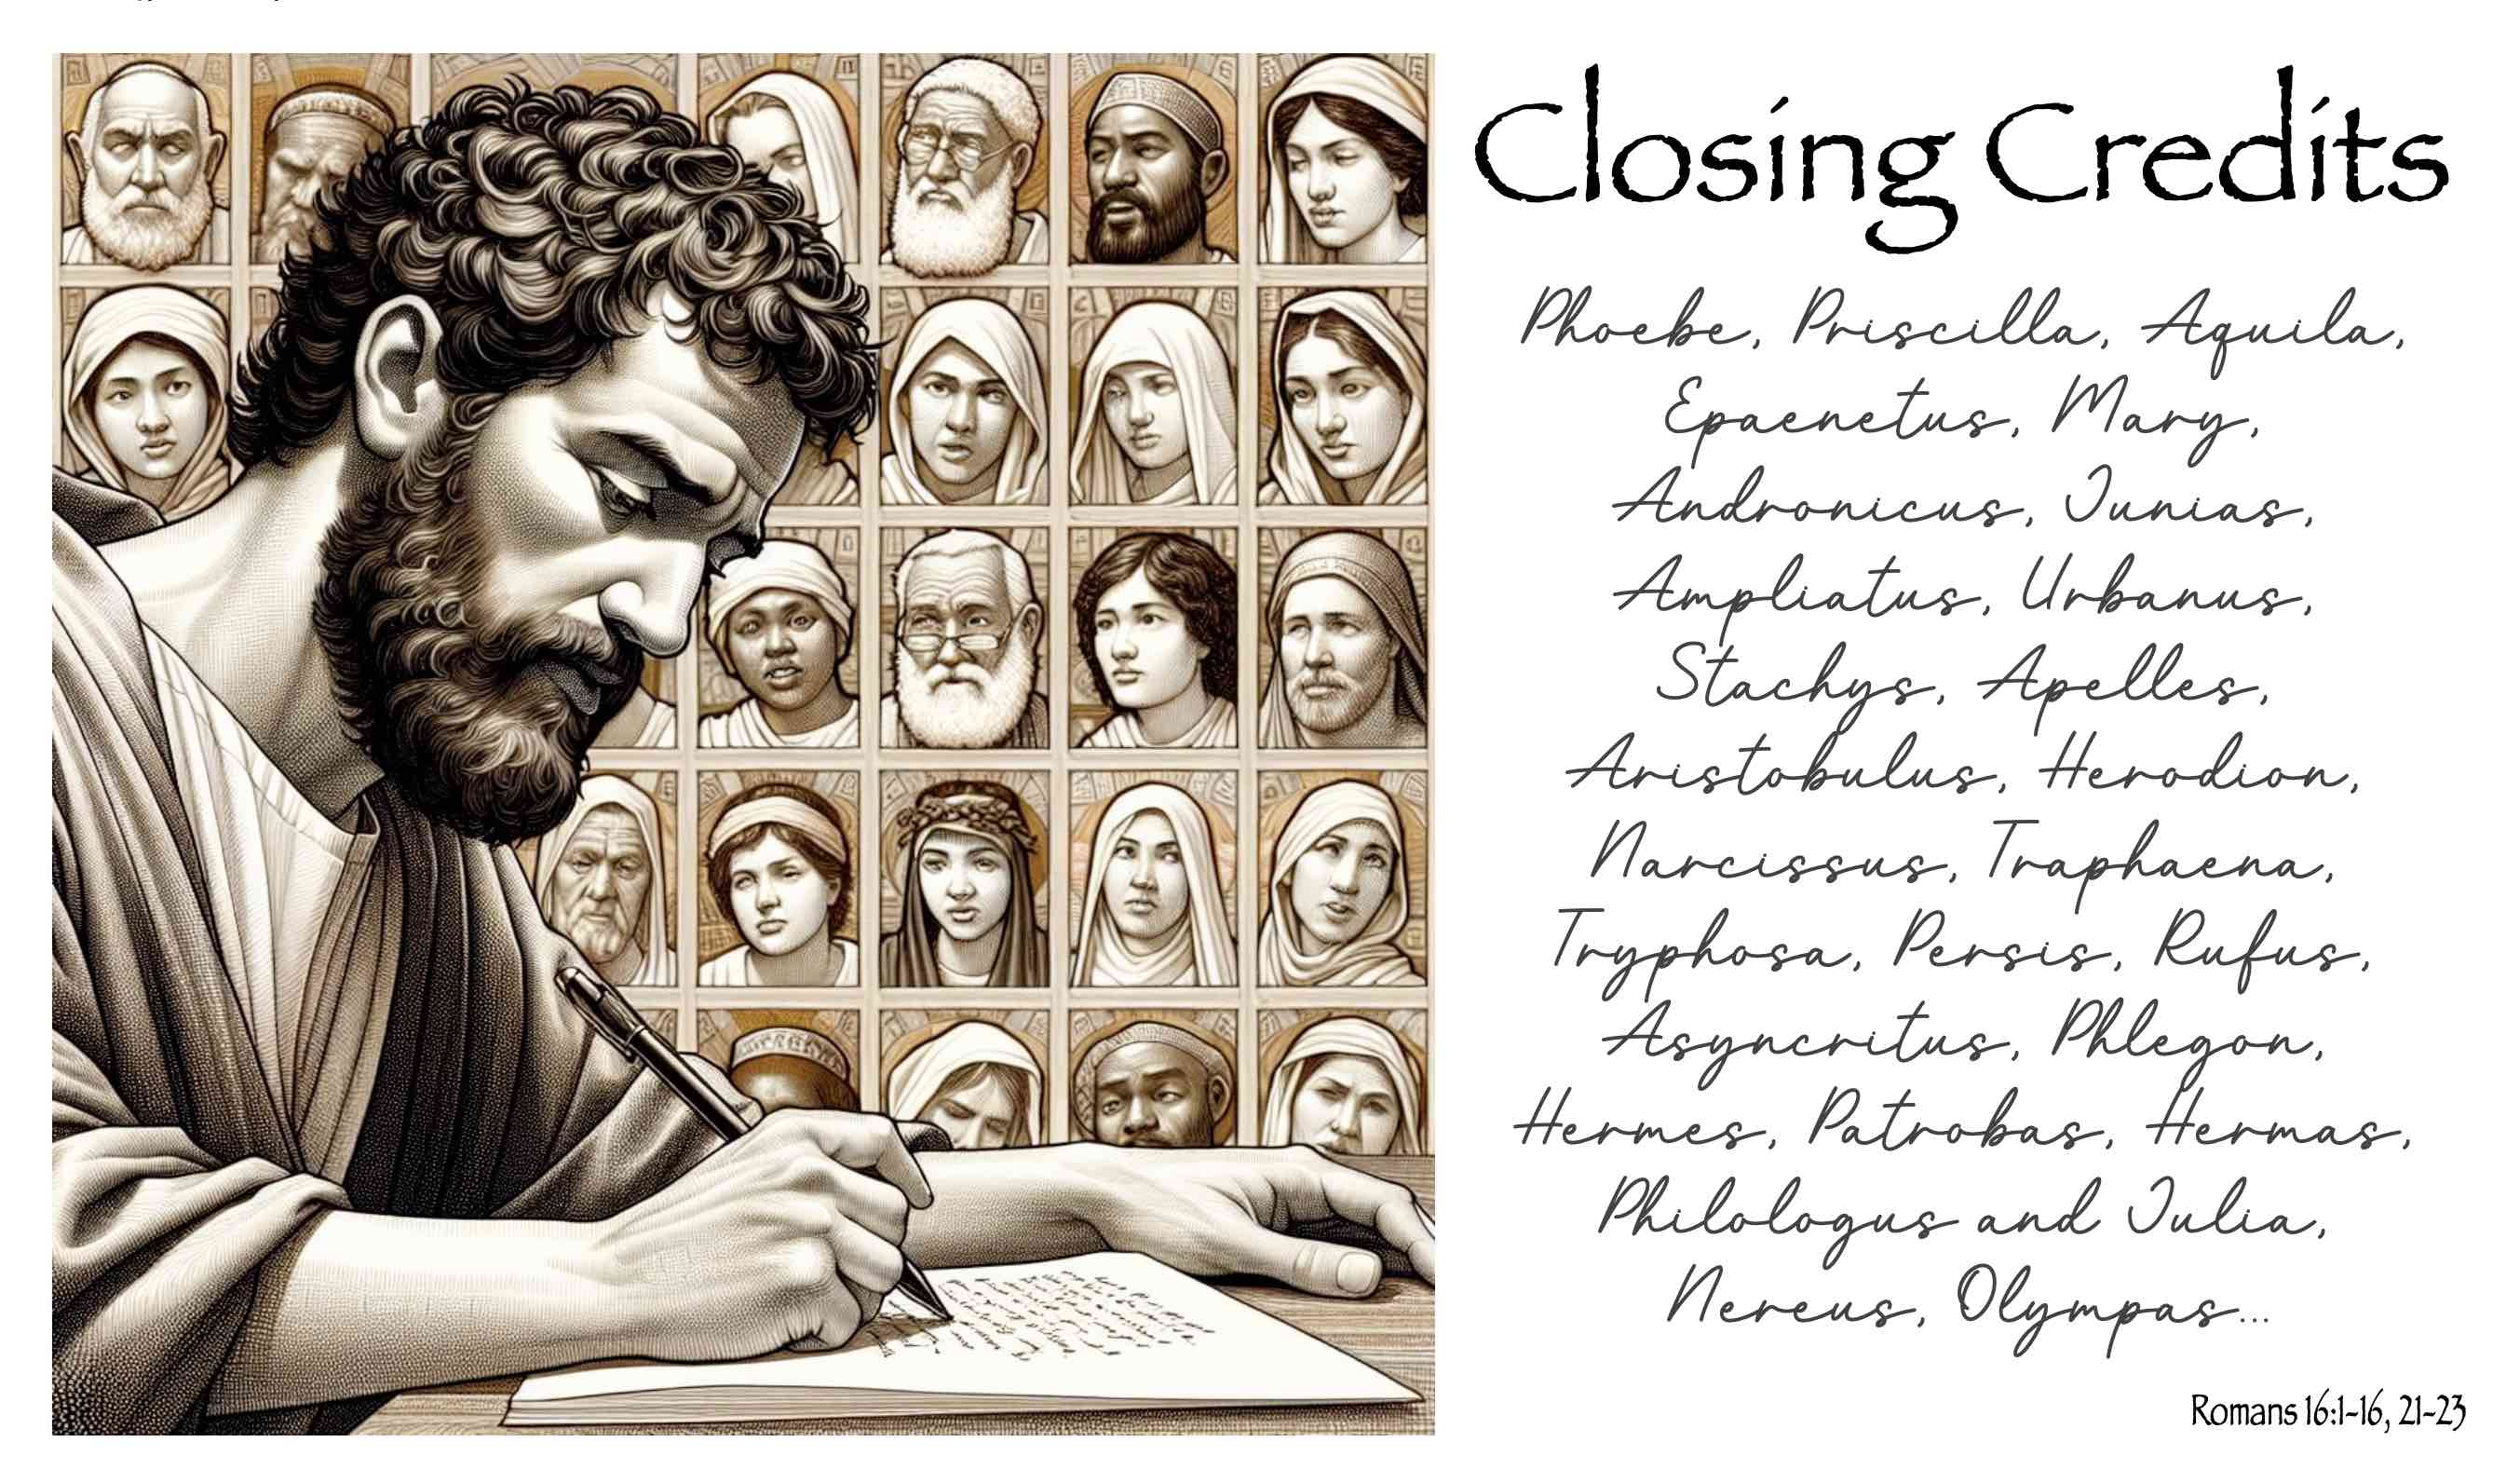 Closing Credits
Phoebe, Priscilla, Aquila,
Epaenetus, Mary,
Andronicus, Junias,
Ampliatus, Urbanus,
Stachys, Apelles,
Aristobulus, Herodion,
Narcissus, Traphaena,
Tryphosa, Persis, Rufus,
Asyncritus, Phlegon,
Hermes, Patrobas, Hermas,
Philologus and Julia,
Nereus, Olympas...
Romans 16:1-16, 21-23